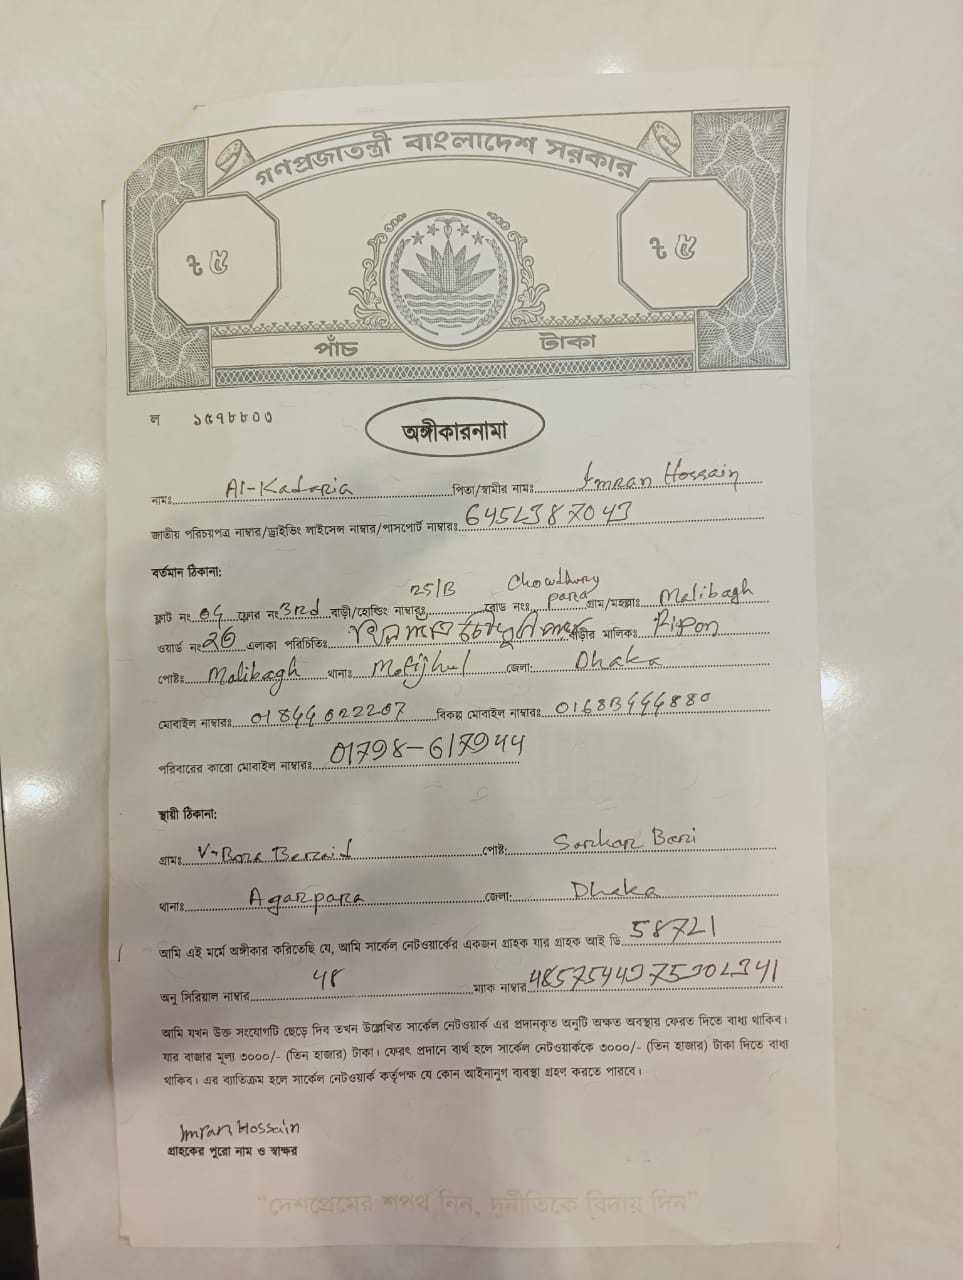 গণপ্রজাতন্ত্রী বাংলাদেশ সরকার
৳ ৫ ৳ ৫
পাঁচ টাকা
ল ১৫৭৮৮০৩
অঙ্গীকারনামা
নামঃ Al-Kadaria পিতা/স্বামীর নামঃ Imran Hossain
জাতীয় পরিচয়পত্র নাম্বার/ড্রাইভিং লাইসেন্স নাম্বার/পাসপোর্ট নাম্বারঃ
বর্তমান ঠিকানা:
ফ্লাট নং 04 ফ্লোর নং 3rd বাড়ী/হোল্ডিং নাম্বারঃ 25/B রোড নংঃ Chowdhury para গ্রাম/মহল্লাঃ Malibagh
ওয়ার্ড নং এলাকা পরিচিতিঃ বাড়ীর মালিকঃ Ripon
পোষ্টঃ Malibagh থানাঃ জেলা: Dhaka
মোবাইল নাম্বারঃ বিকল্প মোবাইল নাম্বারঃ
পরিবারের কারো মোবাইল নাম্বারঃ 01798-617944
স্থায়ী ঠিকানা:
গ্রামঃ পোষ্ট: Sarkar Bari
থানাঃ Agarpara জেলা: Dhaka
আমি এই মর্মে অঙ্গীকার করিতেছি যে, আমি সার্কেল নেটওয়ার্কের একজন গ্রাহক যার গ্রাহক আই ডি 58721
অনু সিরিয়াল নাম্বার 48 ম্যাক নাম্বার
আমি যখন উক্ত সংযোগটি ছেড়ে দিব তখন উল্লেখিত সার্কেল নেটওয়ার্ক এর প্রদানকৃত অনুটি অক্ষত অবস্থায় ফেরত দিতে বাধ্য থাকিব।
যার বাজার মূল্য ৩০০০/- (তিন হাজার) টাকা। ফেরৎ প্রদানে ব্যর্থ হলে সার্কেল নেটওয়ার্ককে ৩০০০/- (তিন হাজার) টাকা দিতে বাধ্য
থাকিব। এর ব্যতিক্রম হলে সার্কেল নেটওয়ার্ক কর্তৃপক্ষ যে কোন আইনানুগ ব্যবস্থা গ্রহণ করতে পারবে।
Imran Hossain
গ্রাহকের পুরো নাম ও স্বাক্ষর
“দেশপ্রেমের শপথ নিন, দুর্নীতিকে বিদায় দিন”